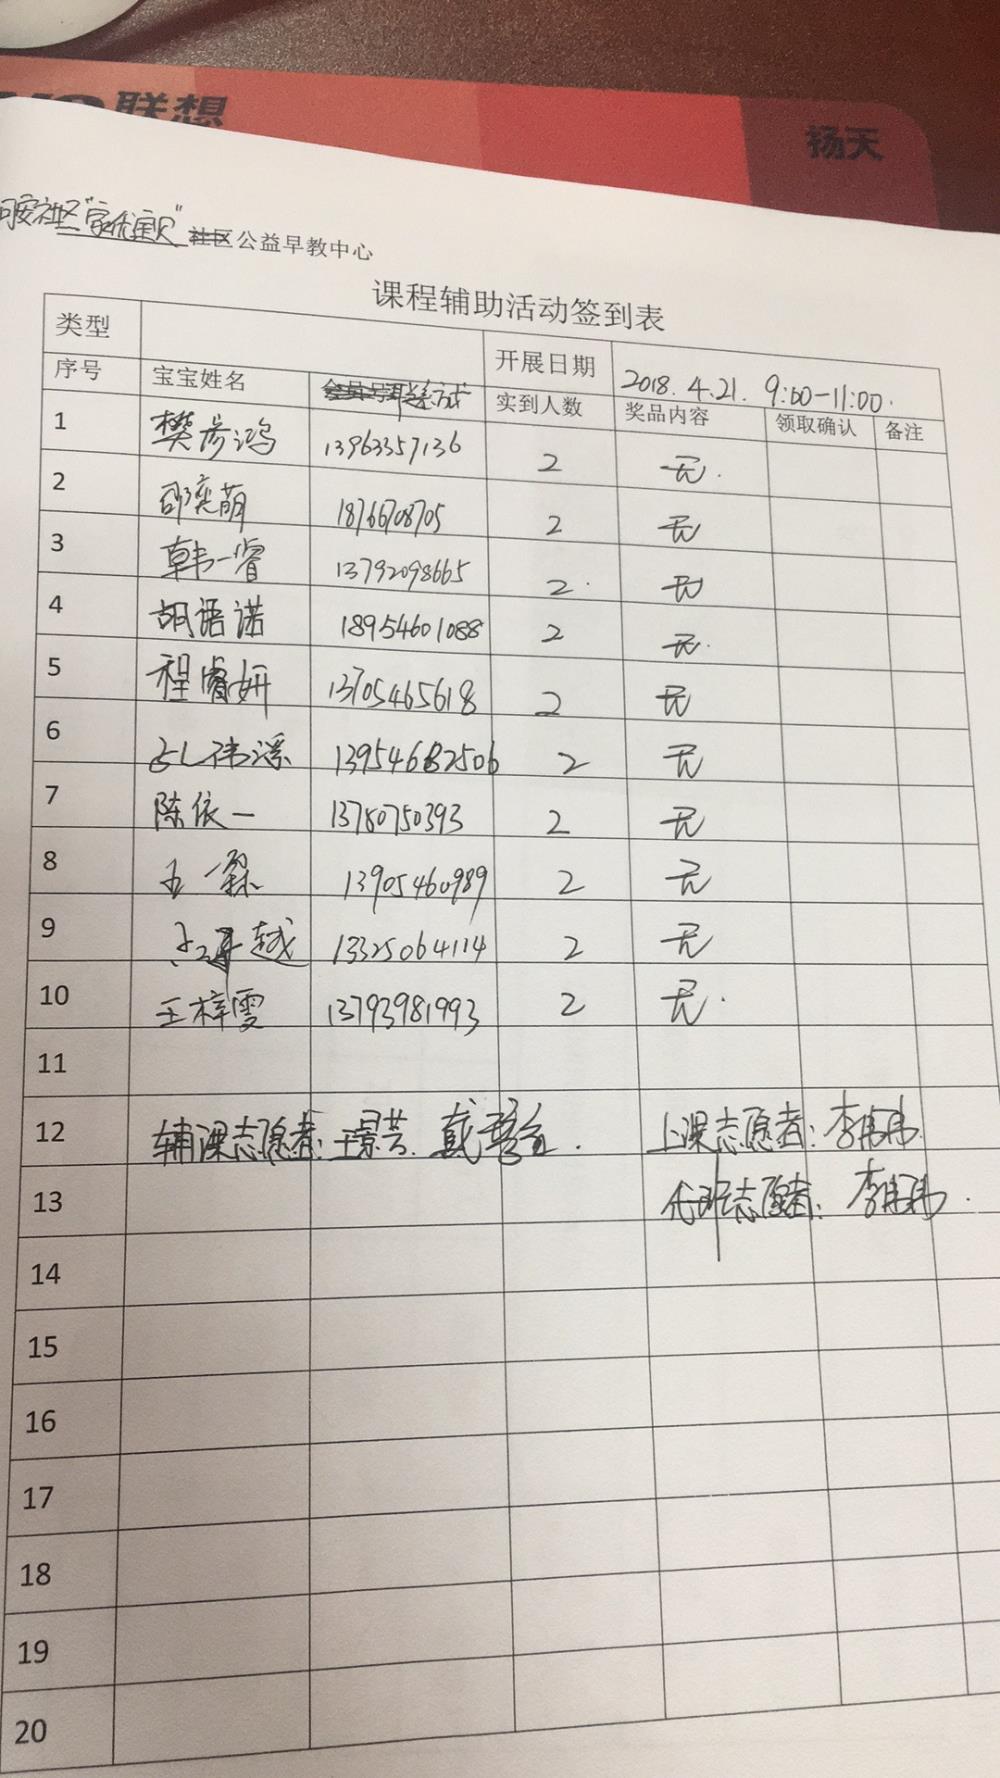 联想
扬天
安社区"家优宝贝"社区公益早教中心
课程辅助活动签到表
类型 开展日期 2018.4.21. 9:00-11:00.
序号 宝宝姓名 会员号 联系方式 实到人数 奖品内容 领取确认 备注
1 樊彦鸿 13963357136 2 无.
2 邵奕萌 18766708705 2 无
3 韩一睿 13792098665 2 无
4 胡语诺 18954601088 2 无.
5 程睿妍 13705465618 2 无
6 13954682506 2 无
7 陈依一 13780750393 2 无
8 王一霖 13905460989 2 无
9 越 13325064114 2 无
10 王梓雯 13793981993 2 无.
11
12 辅课志愿者:王景芸. 戴 . 上课志愿者:李伟伟
13 代班志愿者:李伟伟.
14
15
16
17
18
19
20